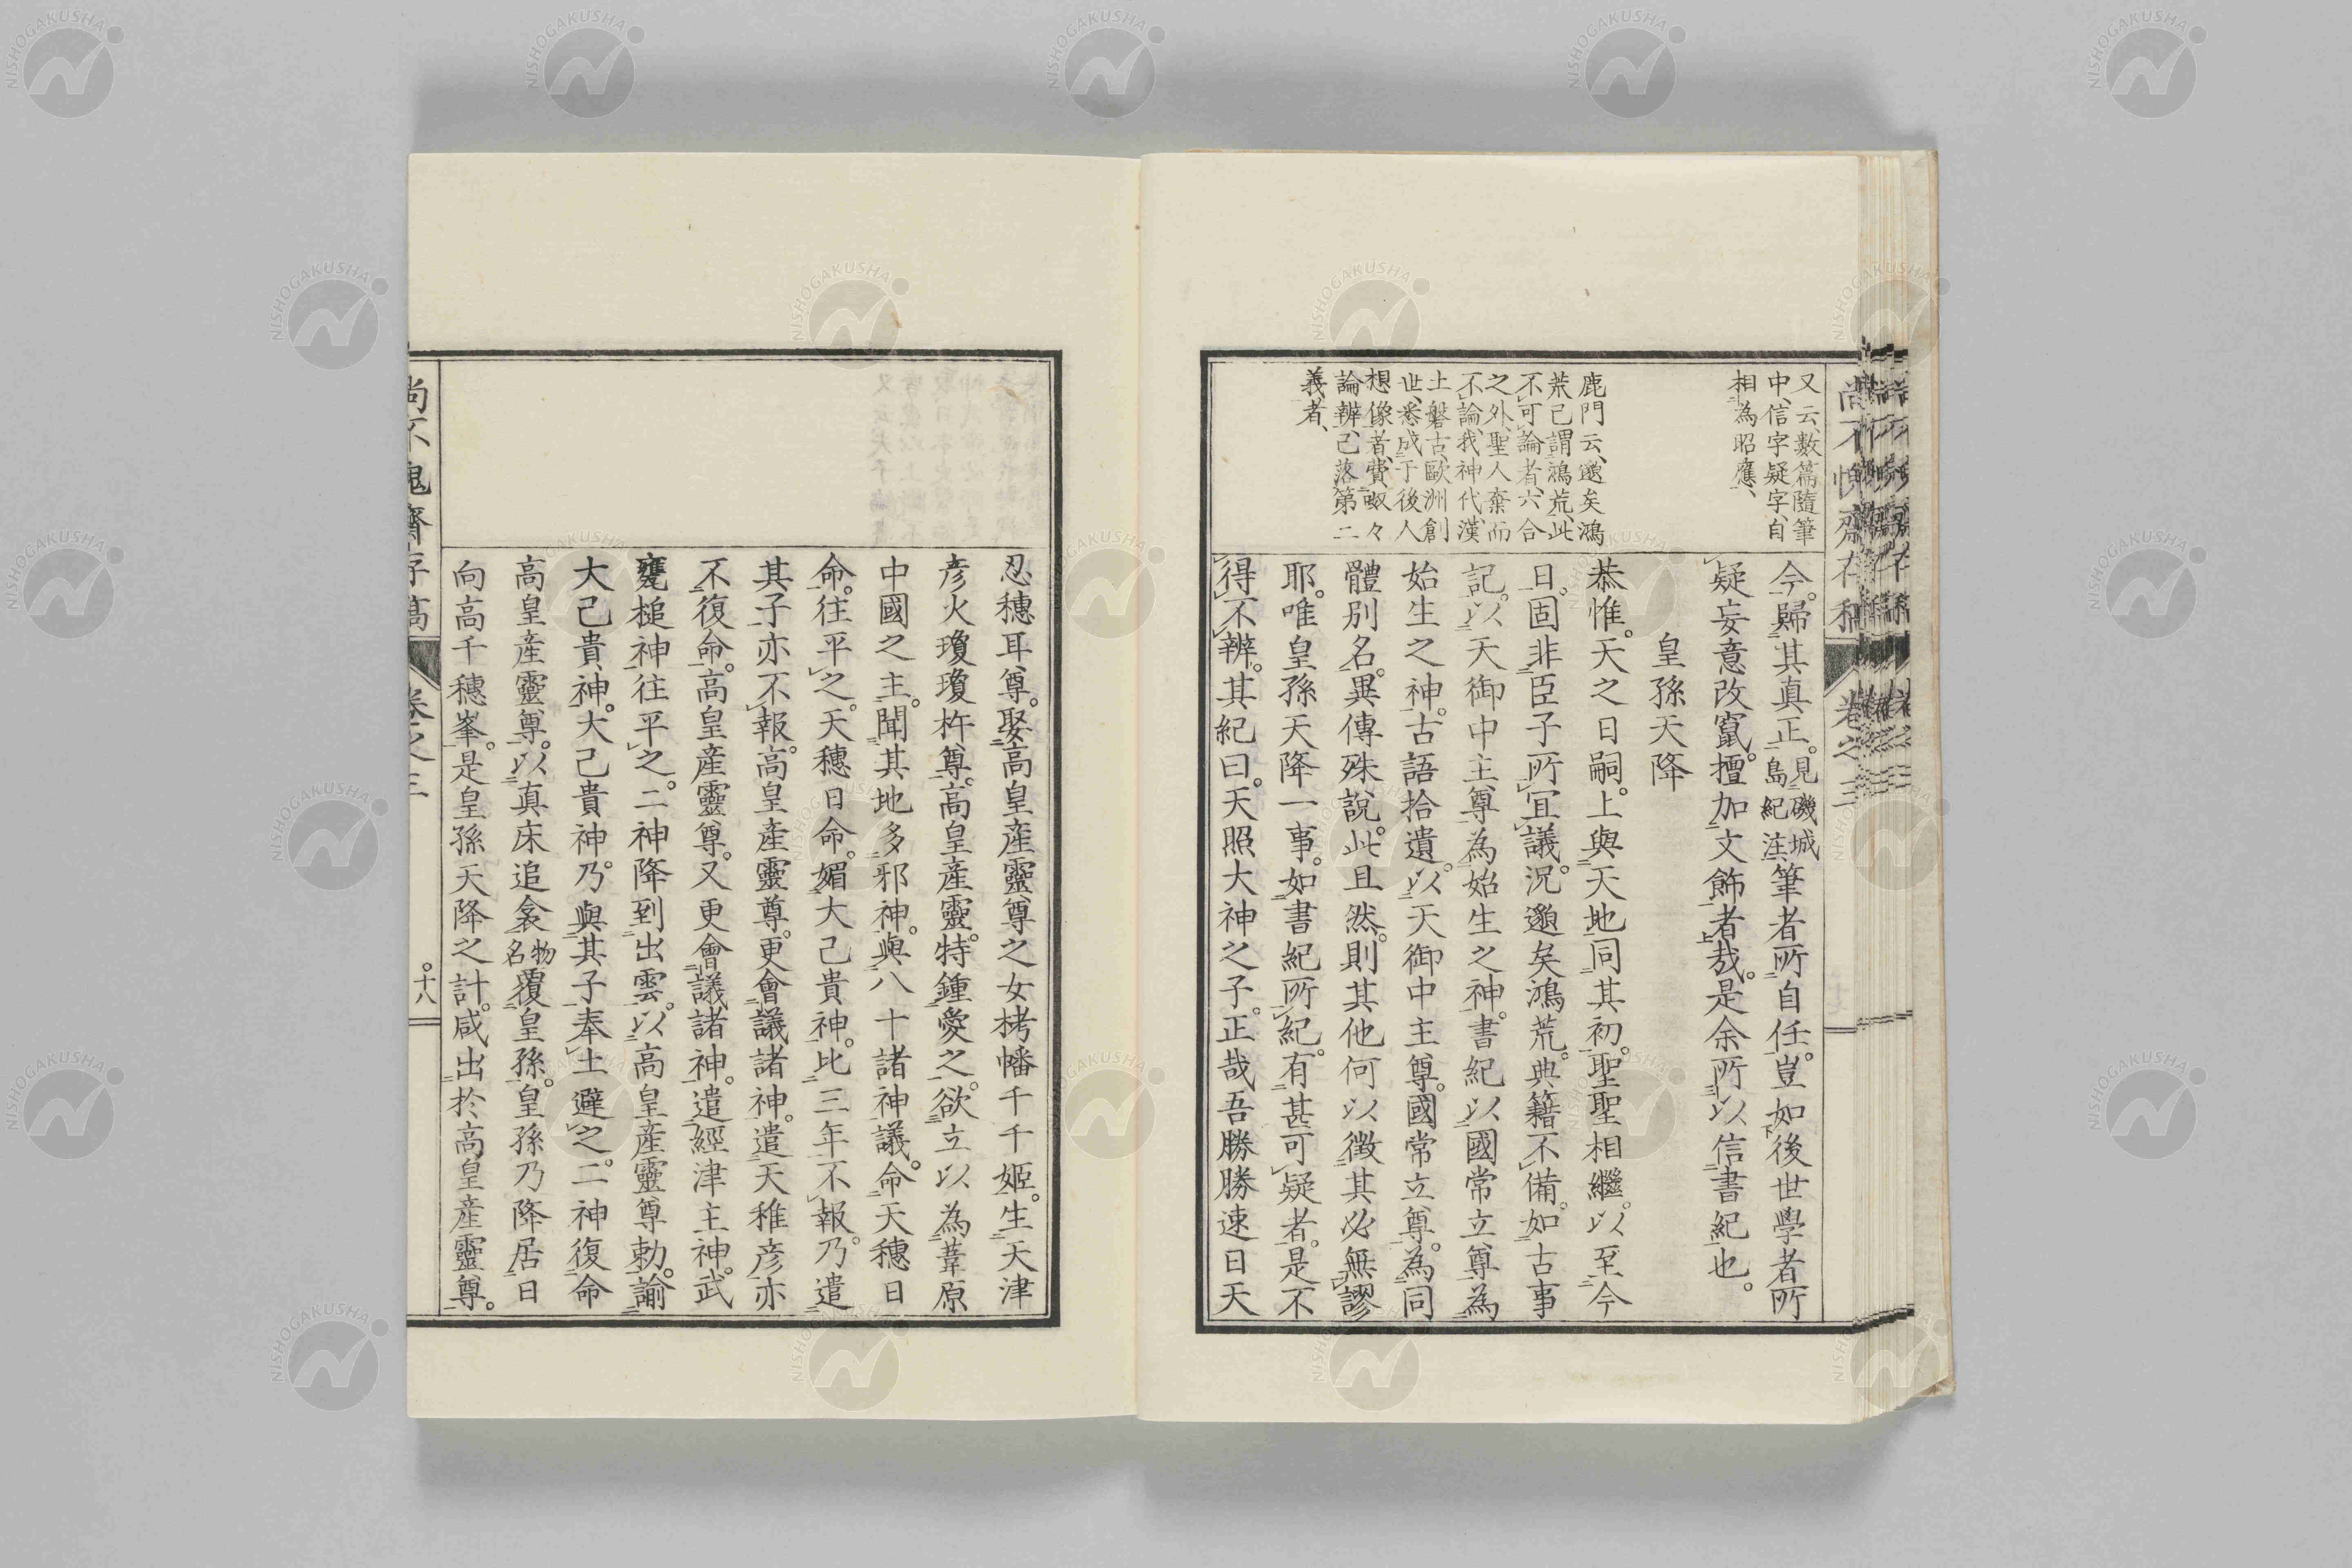 又云、數篇隨筆
中、信字疑字、自
相為昭應、
鹿門云、邈矣鴻
荒、己謂鴻荒、此
不可論者、六合
之外、聖人棄而
不論、我神代、漢
土盤古、歐洲創
世、悉成于後人
想像者、費呶々
論辨、己落第二
義者、
今。歸其真正。見磯城島紀注筆者所自任。豈如後世學者所
疑妄意改竄。擅加文飾者哉。是余所以信書紀也。
皇孫天降
恭惟。天之日嗣。上與天地同其初。聖聖相繼。以至今
日。固非臣子所宜議。況邈矣鴻荒。典籍不備。如古事
記。以天御中主尊為始生之神。書紀以國常立尊為
始生之神。古語拾遺。以天御中主尊。國常立尊。為同
體別名。異傳殊說。此且然。則其他何以徵其必無謬
耶。唯皇孫天降一事。如書紀所紀。有甚可疑者。是不
得不辨。其紀曰。天照大神之子。正哉吾勝勝速日天
忍穗耳尊。娶高皇產靈尊之女栲幡千千姬。生天津
彥火瓊瓊杵尊。高皇產靈。特鍾愛之。欲立以為葦原
中國之主。聞其地多邪神。與八十諸神議。命天穗日
命。往平之。天穗日命。媚大己貴神。比三年不報。乃遣
其子亦不報。高皇產靈尊。更會議諸神。遣天稚彥亦
不復命。高皇產靈尊。又更會議諸神。遣經津主神。武
甕槌神往平之。二神降到出雲。以高皇產靈尊勅。諭
大己貴神。大己貴神。乃與其子奉土避之。二神復命
高皇產靈尊。以真床追衾物名覆皇孫。皇孫乃降居日
向高千穗峯。是皇孫天降之計。咸出於高皇產靈尊。
尚不愧齋存稿
卷之三
十八
NISHOGAKUSHA